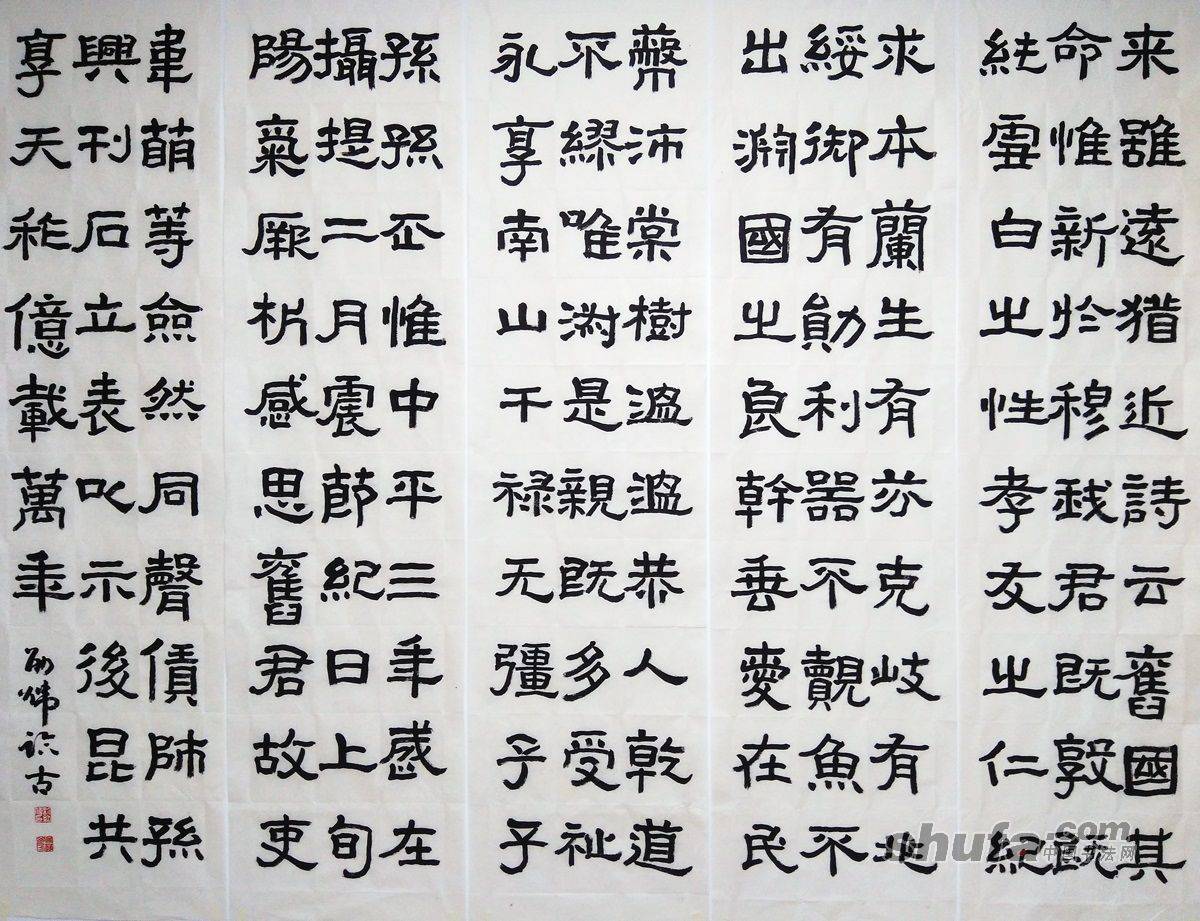 来雖遠猶近詩云舊國其
命惟新於穆我君既敦既
純雪白之性孝友之仁紀
求本蘭生有芬克岐有兆
綏御有勛利器不覿魚不
出淵國之良幹垂愛在民
蔽沛棠樹溫溫恭人乾道
不繆唯淑是親既多受祉
永享南山干禄无彊子子
孫孫企惟中平三年歲在
攝提二月震節紀日上旬
陽氣厥析感思舊君故吏
韋萠等僉然同聲賃師孫
興刊石立表以示後昆共
享天祚億載萬年
shufa.com
中国书法网